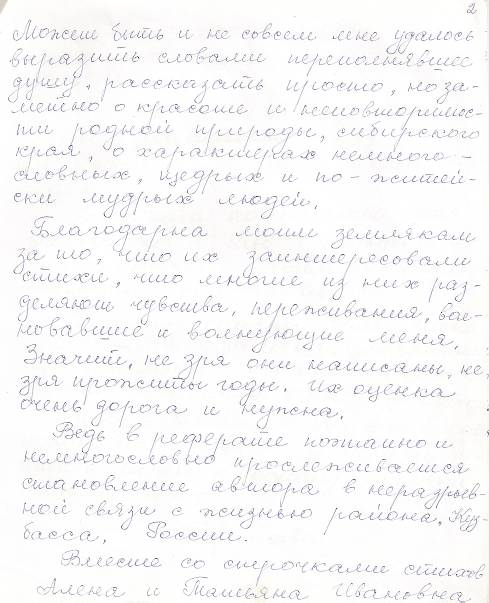 2
Может быть и не совсем мне удалось
выразить словами переполнявшее
душу, рассказать просто, но за-
метно о красоте и неповторимос-
ти родной природы, сибирского
края, о характерах немного-
словных, щедрых и по-житей-
ски мудрых людей.
Благодарна моим землякам
за то, что их заинтересовали
стихи, что многие из них раз-
деляют чувства, переживания, вол-
новавшие и волнующие меня.
Значит, не зря они написаны, не
зря прожиты годы. Их оценка
очень дорога и нужна.
Ведь в реферате поэтапно и
немногословно прослеживается
становление автора в неразрыв-
ной связи с жизнью района, Куз-
басса, России.
Вместе со строчками стихов
Алена и Татьяна Ивановна